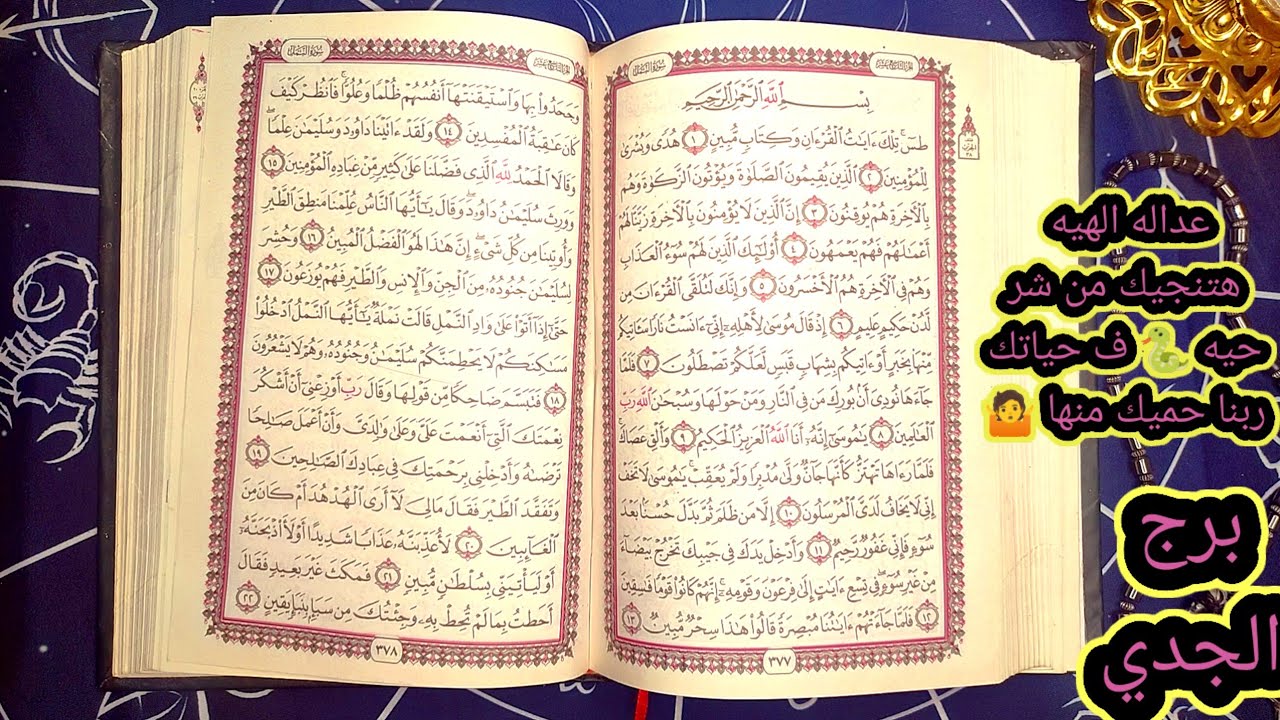 سورة النمل
الجزء التاسع عشر
بِسْمِ اللَّهِ الرَّحْمَٰنِ الرَّحِيمِ
طسٓ ۚ تِلْكَ ءَايَٰتُ الْقُرْءَانِ وَكِتَابٍ مُّبِينٍ ١ هُدًى وَبُشْرَىٰ
لِلْمُؤْمِنِينَ ٢ الَّذِينَ يُقِيمُونَ الصَّلَوٰةَ وَيُؤْتُونَ الزَّكَوٰةَ وَهُم
بِالْءَاخِرَةِ هُمْ يُوقِنُونَ ٣ إِنَّ الَّذِينَ لَا يُؤْمِنُونَ بِالْءَاخِرَةِ زَيَّنَّا لَهُمْ
أَعْمَٰلَهُمْ فَهُمْ يَعْمَهُونَ ٤ أُو۟لَٰٓئِكَ الَّذِينَ لَهُمْ سُوٓءُ الْعَذَابِ
وَهُمْ فِى الْءَاخِرَةِ هُمُ الْأَخْسَرُونَ ٥ وَإِنَّكَ لَتُلَقَّى الْقُرْءَانَ مِن
لَّدُنْ حَكِيمٍ عَلِيمٍ ٦ إِذْ قَالَ مُوسَىٰ لِأَهْلِهِۦٓ إِنِّىٓ ءَانَسْتُ نَارًا سَـَٔاتِيكُم
مِّنْهَا بِخَبَرٍ أَوْ ءَاتِيكُم بِشِهَابٍ قَبَسٍ لَّعَلَّكُمْ تَصْطَلُونَ ٧ فَلَمَّا
جَآءَهَا نُودِىَ أَنۢ بُورِكَ مَن فِى النَّارِ وَمَنْ حَوْلَهَا وَسُبْحَٰنَ اللَّهِ رَبِّ
الْعَٰلَمِينَ ٨ يَٰمُوسَىٰٓ إِنَّهُۥٓ أَنَا اللَّهُ الْعَزِيزُ الْحَكِيمُ ٩ وَأَلْقِ عَصَاكَ ۚ
فَلَمَّا رَءَاهَا تَهْتَزُّ كَأَنَّهَا جَآنٌّ وَلَّىٰ مُدْبِرًا وَلَمْ يُعَقِّبْ ۚ يَٰمُوسَىٰ لَا تَخَفْ
إِنِّى لَا يَخَافُ لَدَىَّ الْمُرْسَلُونَ ١٠ إِلَّا مَن ظَلَمَ ثُمَّ بَدَّلَ حُسْنًۢا بَعْدَ
سُوٓءٍ فَإِنِّى غَفُورٌ رَّحِيمٌ ١١ وَأَدْخِلْ يَدَكَ فِى جَيْبِكَ تَخْرُجْ بَيْضَآءَ
مِنْ غَيْرِ سُوٓءٍ ۖ فِى تِسْعِ ءَايَٰتٍ إِلَىٰ فِرْعَوْنَ وَقَوْمِهِۦٓ ۚ إِنَّهُمْ كَانُوا۟ قَوْمًا فَٰسِقِينَ
١٢ فَلَمَّا جَآءَتْهُمْ ءَايَٰتُنَا مُبْصِرَةً قَالُوا۟ هَٰذَا سِحْرٌ مُّبِينٌ ١٣
٣٧٧
الجزء التاسع عشر
سورة النمل
وَجَحَدُوا۟ بِهَا وَاسْتَيْقَنَتْهَآ أَنفُسُهُمْ ظُلْمًا وَعُلُوًّا ۚ فَانظُرْ كَيْفَ
كَانَ عَٰقِبَةُ الْمُفْسِدِينَ ١٤ وَلَقَدْ ءَاتَيْنَا دَاوُۥدَ وَسُلَيْمَٰنَ عِلْمًا ۖ
وَقَالَا الْحَمْدُ لِلَّهِ الَّذِى فَضَّلَنَا عَلَىٰ كَثِيرٍ مِّنْ عِبَادِهِ الْمُؤْمِنِينَ ١٥
وَوَرِثَ سُلَيْمَٰنُ دَاوُۥدَ ۖ وَقَالَ يَٰٓأَيُّهَا النَّاسُ عُلِّمْنَا مَنطِقَ الطَّيْرِ
وَأُوتِينَا مِن كُلِّ شَىْءٍ ۖ إِنَّ هَٰذَا لَهُوَ الْفَضْلُ الْمُبِينُ ١٦ وَحُشِرَ
لِسُلَيْمَٰنَ جُنُودُهُۥ مِنَ الْجِنِّ وَالْإِنسِ وَالطَّيْرِ فَهُمْ يُوزَعُونَ ١٧
حَتَّىٰٓ إِذَآ أَتَوْا۟ عَلَىٰ وَادِ النَّمْلِ قَالَتْ نَمْلَةٌ يَٰٓأَيُّهَا النَّمْلُ ادْخُلُوا۟
مَسَٰكِنَكُمْ لَا يَحْطِمَنَّكُمْ سُلَيْمَٰنُ وَجُنُودُهُۥ وَهُمْ لَا يَشْعُرُونَ
١٨ فَتَبَسَّمَ ضَاحِكًا مِّن قَوْلِهَا وَقَالَ رَبِّ أَوْزِعْنِىٓ أَنْ أَشْكُرَ
نِعْمَتَكَ الَّتِىٓ أَنْعَمْتَ عَلَىَّ وَعَلَىٰ وَٰلِدَىَّ وَأَنْ أَعْمَلَ صَٰلِحًا
تَرْضَىٰهُ وَأَدْخِلْنِى بِرَحْمَتِكَ فِى عِبَادِكَ الصَّٰلِحِينَ ١٩
وَتَفَقَّدَ الطَّيْرَ فَقَالَ مَالِىَ لَآ أَرَى الْهُدْهُدَ أَمْ كَانَ مِنَ
الْغَآئِبِينَ ٢٠ لَأُعَذِّبَنَّهُۥ عَذَابًا شَدِيدًا أَوْ لَأَا۟ذْبَحَنَّهُۥٓ
أَوْ لَيَأْتِيَنِّى بِسُلْطَٰنٍ مُّبِينٍ ٢١ فَمَكَثَ غَيْرَ بَعِيدٍ فَقَالَ
أَحَطتُ بِمَا لَمْ تُحِطْ بِهِۦ وَجِئْتُكَ مِن سَبَإٍۭ بِنَبَإٍ يَقِينٍ ٢٢
٣٧٨
عداله الهيه
هتنجيك من شر
حيه 🐍 ف حياتك
ربنا حميك منها 🤷
برج
الجدي